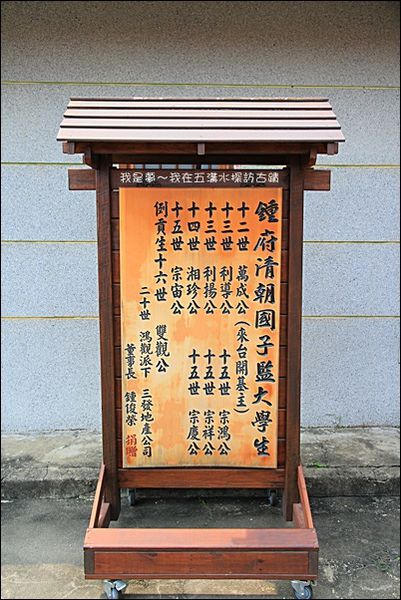 我是夢~我在五溝水探訪古蹟
鍾府清朝國子監大學生
十二世 萬成公(來台開基主)
十三世 利導公 十五世 宗鴻公
十三世 利揚公 十五世 宗祥公
十四世 湘珍公 十五世 宗慶公
十五世 宗宙公
例貢生十六世 雙觀公
二十世 鴻觀派下 三發地產公司
董事長 鍾俊榮 捐贈